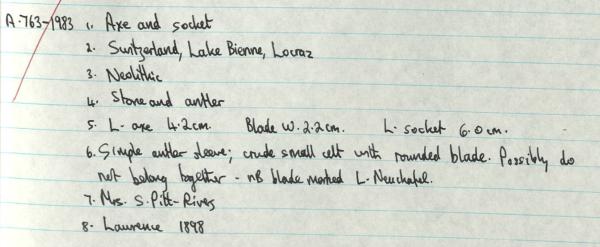 A.763-1983 1. Axe and socket
2. Switzerland, Lake Bienne, Locraz
3. Neolithic
4. Stone and antler
5. L. axe 4.2cm. Blade W. 2.2cm. L. socket 6.0cm.
6. Simple antler sleeve; crude small celt with rounded blade. Possibly do
not belong together - nB blade marked L. Neuchatel.
7. Mrs. S. Pitt-Rivers
8. Lawrence 1898